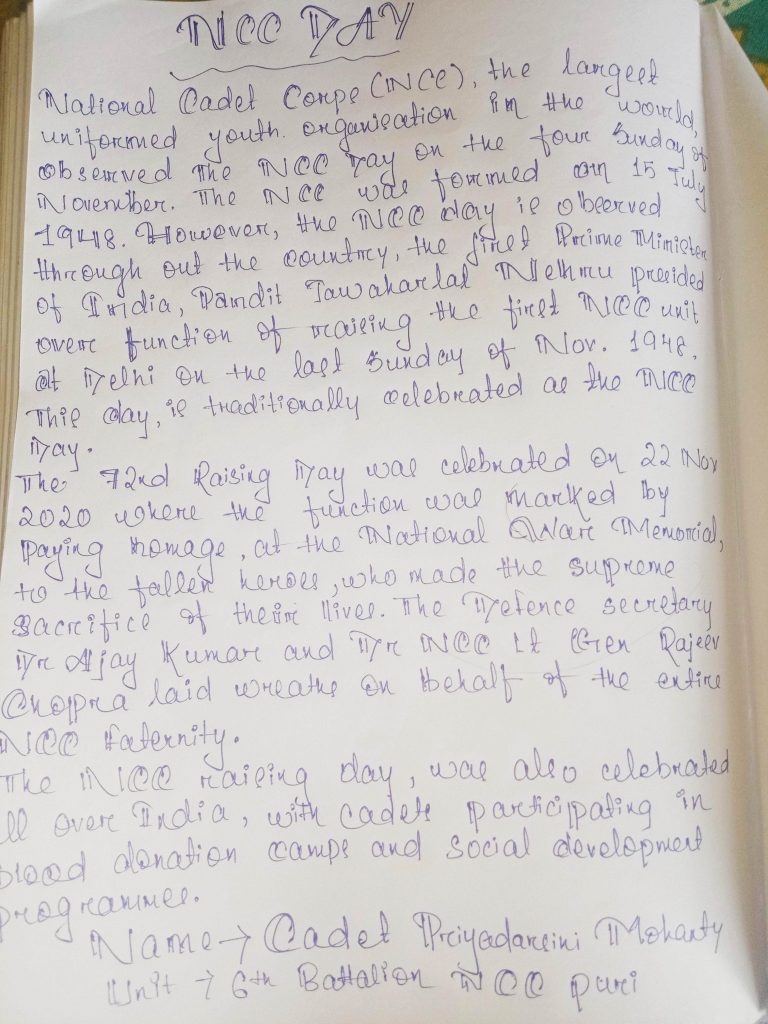 NCC DAY
National Cadet Corps (NCC), the largest
uniformed youth organisation in the world,
observed The NCC Day on the four Sunday of
November. The NCC was formed on 15 July
1948. However, the NCC day is observed
through out the country, the first Prime Minister
of India, Pandit Jawaharlal Nehru presided
over function of raising the first NCC unit
at Delhi on the last Sunday of Nov. 1948.
This day, is traditionally celebrated as the NCC
Day.
The 72nd Raising Day was celebrated on 22 Nov
2020 where the function was marked by
paying homage, at the National War Memorial,
to the fallen heroes, who made the supreme
sacrifice of their lives. The Defence secretary
Dr Ajay Kumar and Dr NCC Lt Gen Rajeev
Chopra laid wreaths on behalf of the entire
NCC faternity.
The NCC raising day, was also celebrated
ll over India, with cadets participating in
blood donation camps and social development
programmes.
Name → Cadet Priyadarsini Mohanty
Unit → 6th Battalion NCC puri